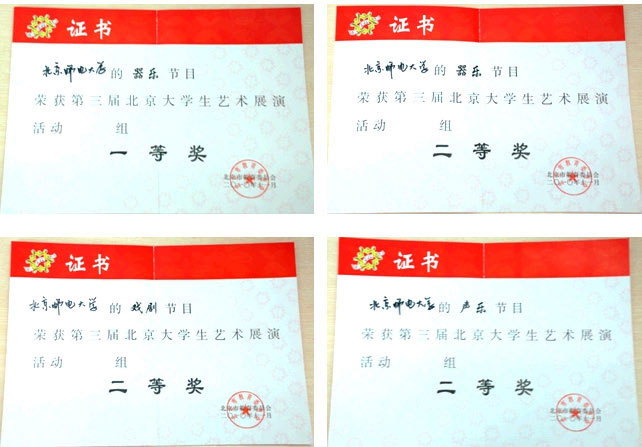 证书
北京邮电大学的器乐节目
荣获第三届北京大学生艺术展演
活动 组
一等奖
证书
北京邮电大学的器乐节目
荣获第三届北京大学生艺术展演
活动 组
二等奖
证书
北京邮电大学的戏剧节目
荣获第三届北京大学生艺术展演
活动 组
二等奖
证书
北京邮电大学的声乐节目
荣获第三届北京大学生艺术展演
活动 组
二等奖